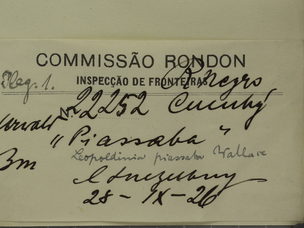 COMMISSÃO RONDON
INSPECÇÃO DE FRONTEIRAS
R. Negro
Reg. 1.
Nº 22252 Cucuhy
"Piassaba"
Leopoldinia piassaba Wallace
3m
28-IX-26